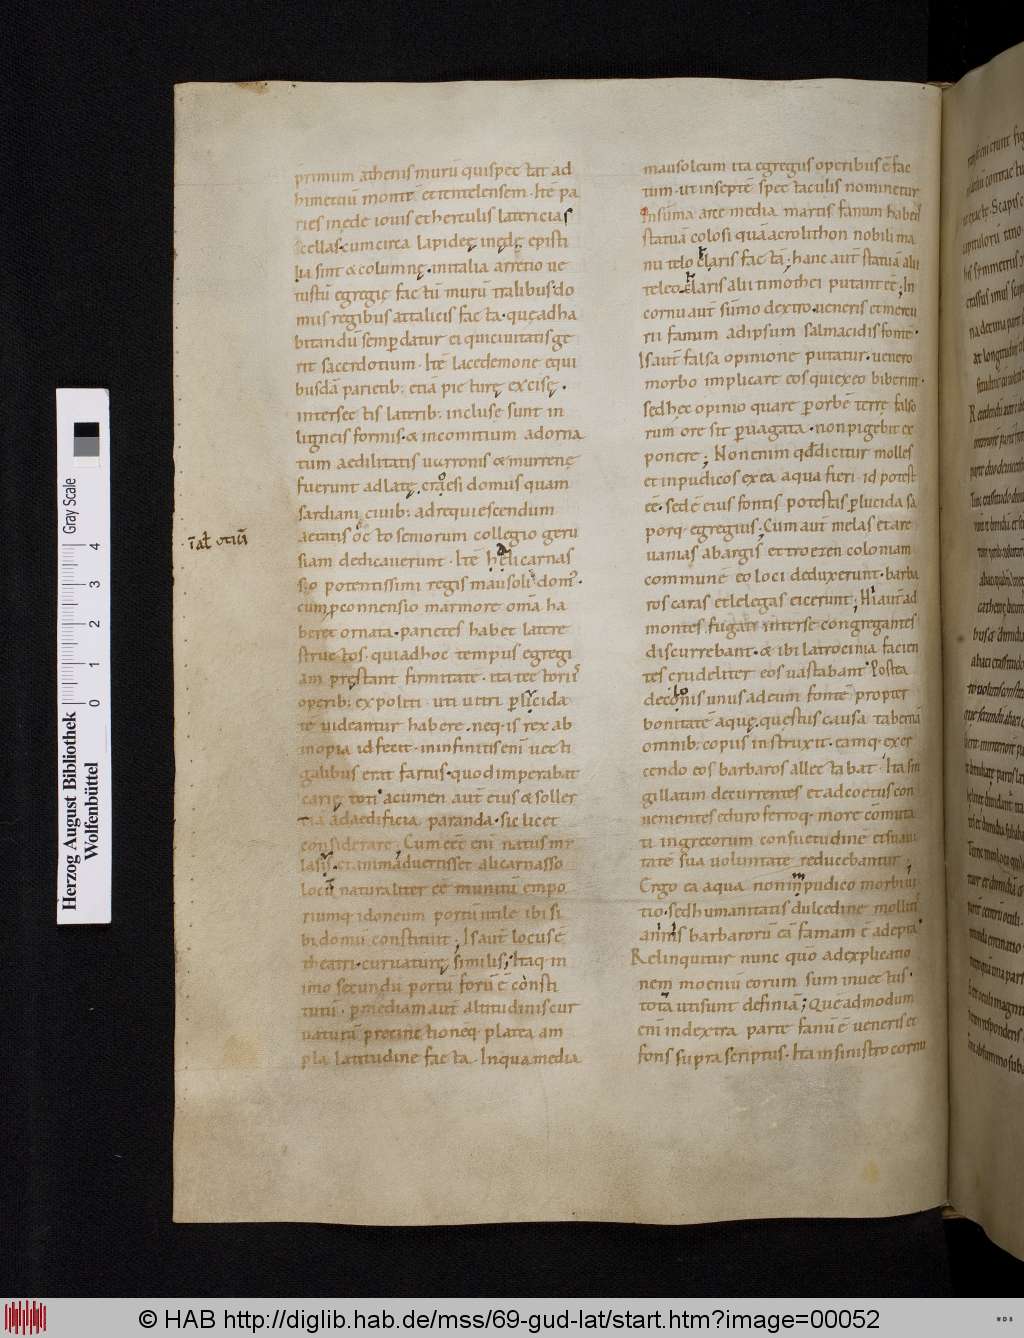 primum athenis murū quispectat ad
himettiū montē et entelensem · Itē pa
ries in ęde iouis et herculis latericias
cellas · cum circa lapideę in ędę episti
lia sint & columnę · in italia arretio ue
tustū egregię factū murū trallibus do
mus regibus attalicis facta · que ad ha
bitandū semp datur ei qui ciuitatis ge
rit sacerdotium · Itē lacedemone e qui
busdā parietib: etiā picturę excisę ·
intersectis laterib: incluse sunt in
ligneis formis · & in comitium ad orna
tum aedilitatis uarronis & murrenę
fuerunt adlatę, craesi domus quam
sardiani ciuib: ad requiescendum
īał otiū
aetatis oc̄to seniorum collegio geru
siam dedicauerunt · Itē halicarnas
sio potentissimi regis mausoli dom'
cum pconnensio marmore om̄a ha
beret ornata · parietes habet latere
structos · qui ad hoc tempus egregi
am pręstant firmitatē · ita tectorii
operib: expoliti · uti uitri plucida
tē uideantur habere · neq· is rex ab
inopia id fecit · in infinitis eni uecti
galibus erat fartus · quod imperabat
carię toti' acumen aut̄ eius & soller
tia ad aedificia paranda · sic licet
considerare · Cum ēēt eni natus my
lasis, et animaduertisset alicarnasso
locū naturaliter eē munitū empo
riumq· idoneum portū utile ibi si
bi domū constituit ; Is aut̄ locus ē
theatri curuaturę similis ; Itaq· in
imo secundū portū forū ē consti
tutū · p mediam aut̄ altitudinis cur
uaturū precinctioneq· platea am
pla latitudine facta · In qua media
mausoleum ita egregiis operibus ē fac
tum · ut in septē spectaculis nominetur
In sūma arce media martis fanum habens
statuā colosi quā acrolithon nobili ma
nu telocharis factā ; hanc aut̄ statuā alii
teleocharis alii timothei putant eē ; In
cornu aut̄ sūmo dextro ueneris et mercu
rii fanum ad ipsum salmacidis fontē ·
Is aut̄ falsa opinione putatur · uenero
morbo implicare eos qui ex eo biberint ·
sed hec opinio quare p orbē terrę falso
rum ore sit puagata · non pigebit ex
ponere ; Non enim qd dicitur molles
et inpudicos ex ea aqua fieri · id potest
eē · sed ē eius fontis potestas plucida sa
porq· egregius ; Cum aut̄ melas et are
uanias ab argis et troezen coloniam
communē eo loci deduxerunt · barba
ros caras et lelegas eicerunt ; Hi aut̄ ad
montes fugati inter se congregantes
discurrebant · & ibi latrocinia facien
tes crudeliter eos uastabant · Postea
de colonis unus ad eum fontē propter
bonitatē aquę, questus causa tabernā
omnib: copiis instruxit · eamq· exer
cendo eos barbaros allectabat · Ita sin
gillatim decurrentes et ad coetus con
uenientes e duro ferroq· more cōmuta
ti in grecorum consuetudinē et suaui
tatē sua uoluntate reducebantur ;
Ergo ea aqua non inpudico morbi ui
tio · sed humanitatis dulcedine mollitis
animis barbarorū eā famam ē adepta
Relinquitur nunc quō ad explicatio
nem moeniū eorum sum inuectus ·
tota uti sunt definiā ; Quē admodum
eni in dextra parte fanū ē ueneris et
fons supra scriptus · Ita in sinistro cornu
Herzog August Bibliothek
Wolfenbüttel
Gray Scale
0 1 2 3 4
© HAB http://diglib.hab.de/mss/69-gud-lat/start.htm?image=00052